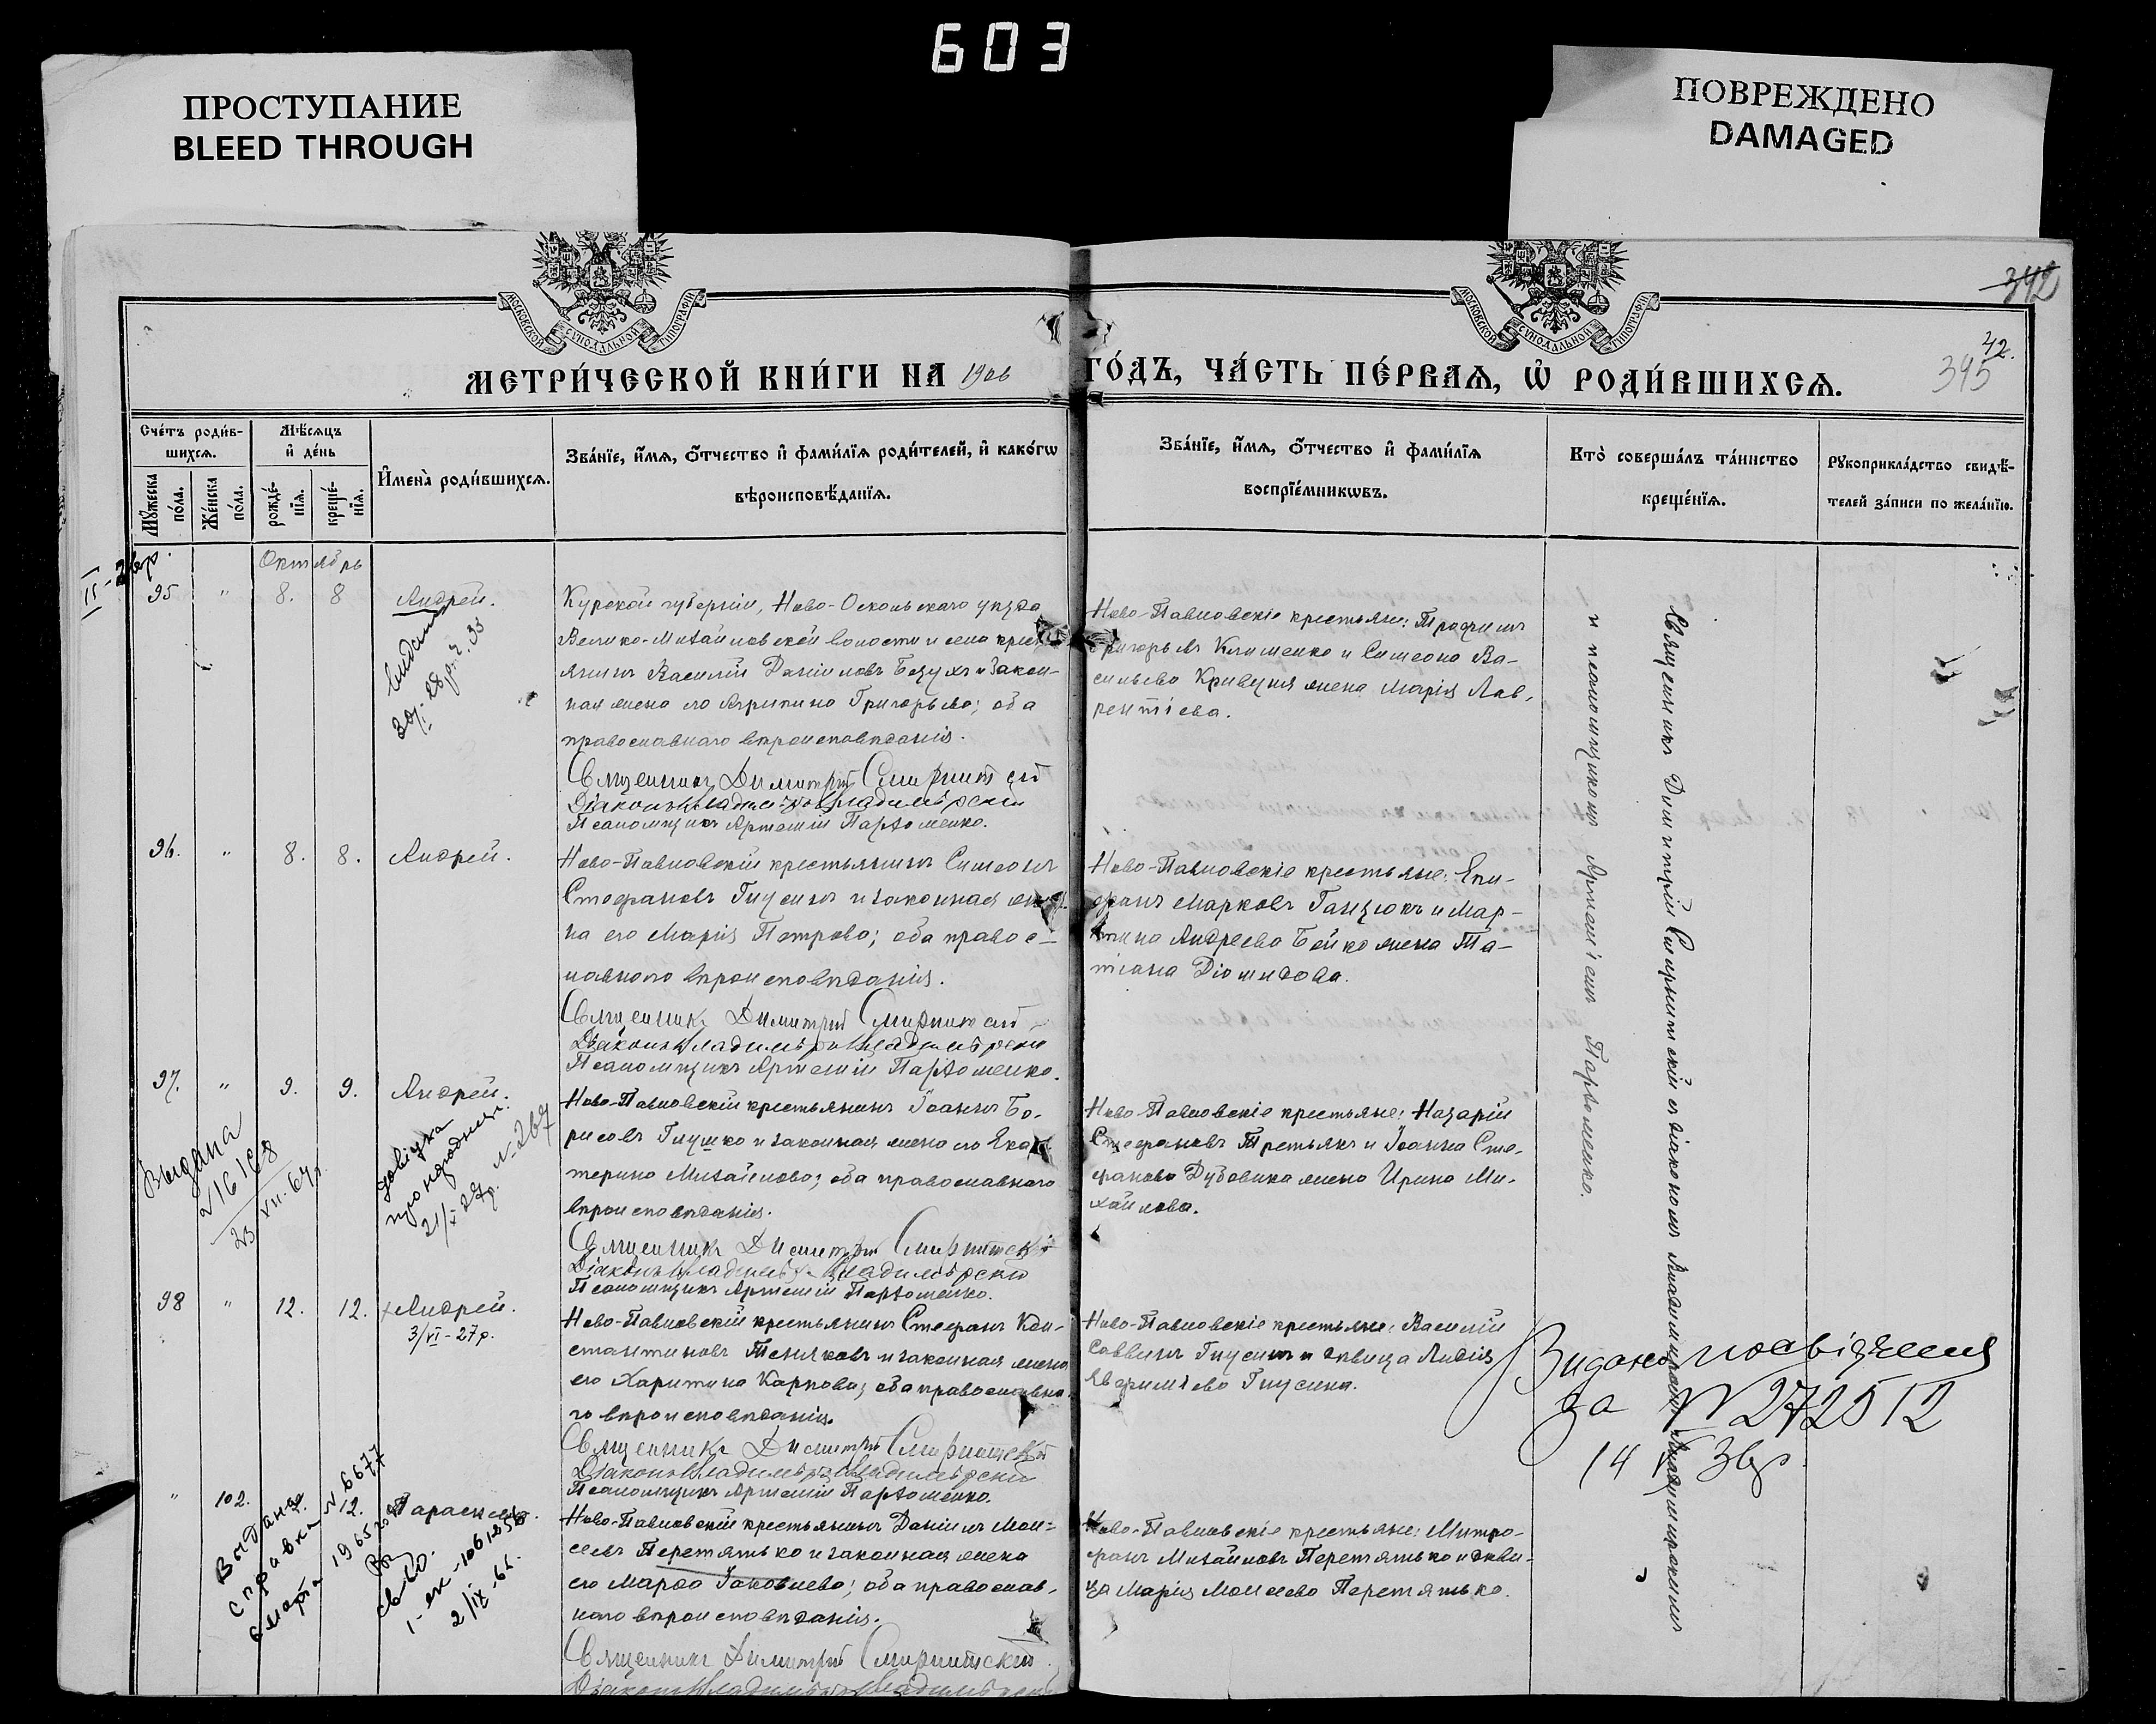 603
ПРОСТУПАНИЕ
BLEED THROUGH
ПОВРЕЖДЕНО
DAMAGED
МОСКОВСКОЙ СѴНОДАЛЬНОЙ ТИПОГРАФІИ
МОСКОВСКОЙ СѴНОДАЛЬНОЙ ТИПОГРАФІИ
342
42.
395
МЕТРИ́ЧЕСКОЙ КНИ́ГИ НА 1906 ГО́ДЪ, ЧА́СТЬ ПЕ́РВАѦ, Ѡ РОДИ́ВШИХСѦ.
Сче́тъ роди́в-
шихсѧ.
Мꙋ́жеска по́ла.
Же́нска по́ла.
Мѣ́сѧцъ и де́нь
рожде́-
нїѧ.
креще́-
нїѧ.
Имена̀ роди́вшихсѧ.
Зва́нїе, и́мѧ, о́тчество и фами́лїѧ роди́телей, и како́гѡ
вѣроисповѣ́данїѧ.
Зва́нїе, и́мѧ, о́тчество и фами́лїѧ
воспрїе́мникѡвъ.
Кто̀ соверша́лъ та́инство
креще́нїѧ.
Рꙋкоприкла́дство свидѣ́-
телей за́писи по жела́нїю.
Октябрь
95 " 8. 8 Андрей.
Курской губерніи, Ново-Оскольскаго уѣзда
Велико-Михайловской волости и села крест-
янинъ Василій Даніиловъ и закон-
ная жена его Агрипина Григорьева; оба
православнаго вѣроисповѣданія.
Священникъ Димитрій Смирнитскій
Діаконъ Владиміръ Владимірскій
Псаломщикъ Артемій Пархоменко.
Ново-Павловскіе крестьяне: Трофимъ
Григорьевъ Клименко и Симеона Ва-
сильева жена Марія Лав-
рентіева.
96. " 8. 8. Андрей.
Ново-Павловскій крестьянинъ Симеонъ
Стефановъ Гнусинъ и законная же-
на его Марія Петрова; оба правос-
лавнаго вѣроисповѣданія.
Священникъ Димитрій Смирнитскій
Діаконъ Владиміръ Владимірскій
Псаломщикъ Артемій Пархоменко.
Ново-Павловскіе крестьяне: Епи-
фанъ Марковъ Ганзюкъ и Мар-
тина Андреева Бойко жена Та-
тіана Діомидова.
97. " 9. 9. Андрей.
Выдана
23 VII-67г.
довідка
21/X 29р. N-267
Ново-Павловскій крестьянинъ Іоаннъ Бо-
рисовъ Глушко и законная жена его Ека-
терина Михайлова; оба православнаго
вѣроисповѣданія.
Священникъ Димитрій Смирнитскій
Діаконъ Владиміръ Владимірскій
Псаломщикъ Артемій Пархоменко.
Ново-Павловскіе крестьяне: Назарій
Стефановъ Третьякъ и Іоанна Сте-
фанова Дубовика жена Ирина Ми-
хайлова.
98 " 12. 12. Андрей.
3/VI-27р.
Ново-Павловскій крестьянинъ Стефанъ Кон-
стантиновъ Теняковъ и законная жена
его Харитина Карпова; оба православна-
го вѣроисповѣданія.
Священникъ Димитрій Смирнитскій
Діаконъ Владиміръ Владимірскій
Псаломщикъ Артемій Пархоменко.
Ново-Павловскіе крестьяне: Василій
Саввинъ Гнусинъ и дѣвица Лидія
Евфиміева Гнусина.
Видано посвідчення
за N 272512
14 V 36р.
" 102. 12. Параскева.
Выдана
справка N 6677
6 марта 1965 года
св-во.
1-як-1061256
2/IX-65.
Ново-Павловскій крестьянинъ Даніилъ Мои-
сеевъ Перетятько и законная жена
его Марѳа Іаковлева; оба православ-
наго вѣроисповѣданія.
Священникъ Димитрій Смирнитскій
Діаконъ Владиміръ Владимірскій
Ново-Павловскіе крестьяне: Митро-
фанъ Михайловъ Перетятько и дѣви-
ца Марія Моисеева Перетятько.
Священникъ Димитрій Смирнитскій съ діакономъ Владиміромъ Владимірскимъ
и псаломщикомъ Артеміемъ Пархоменко.